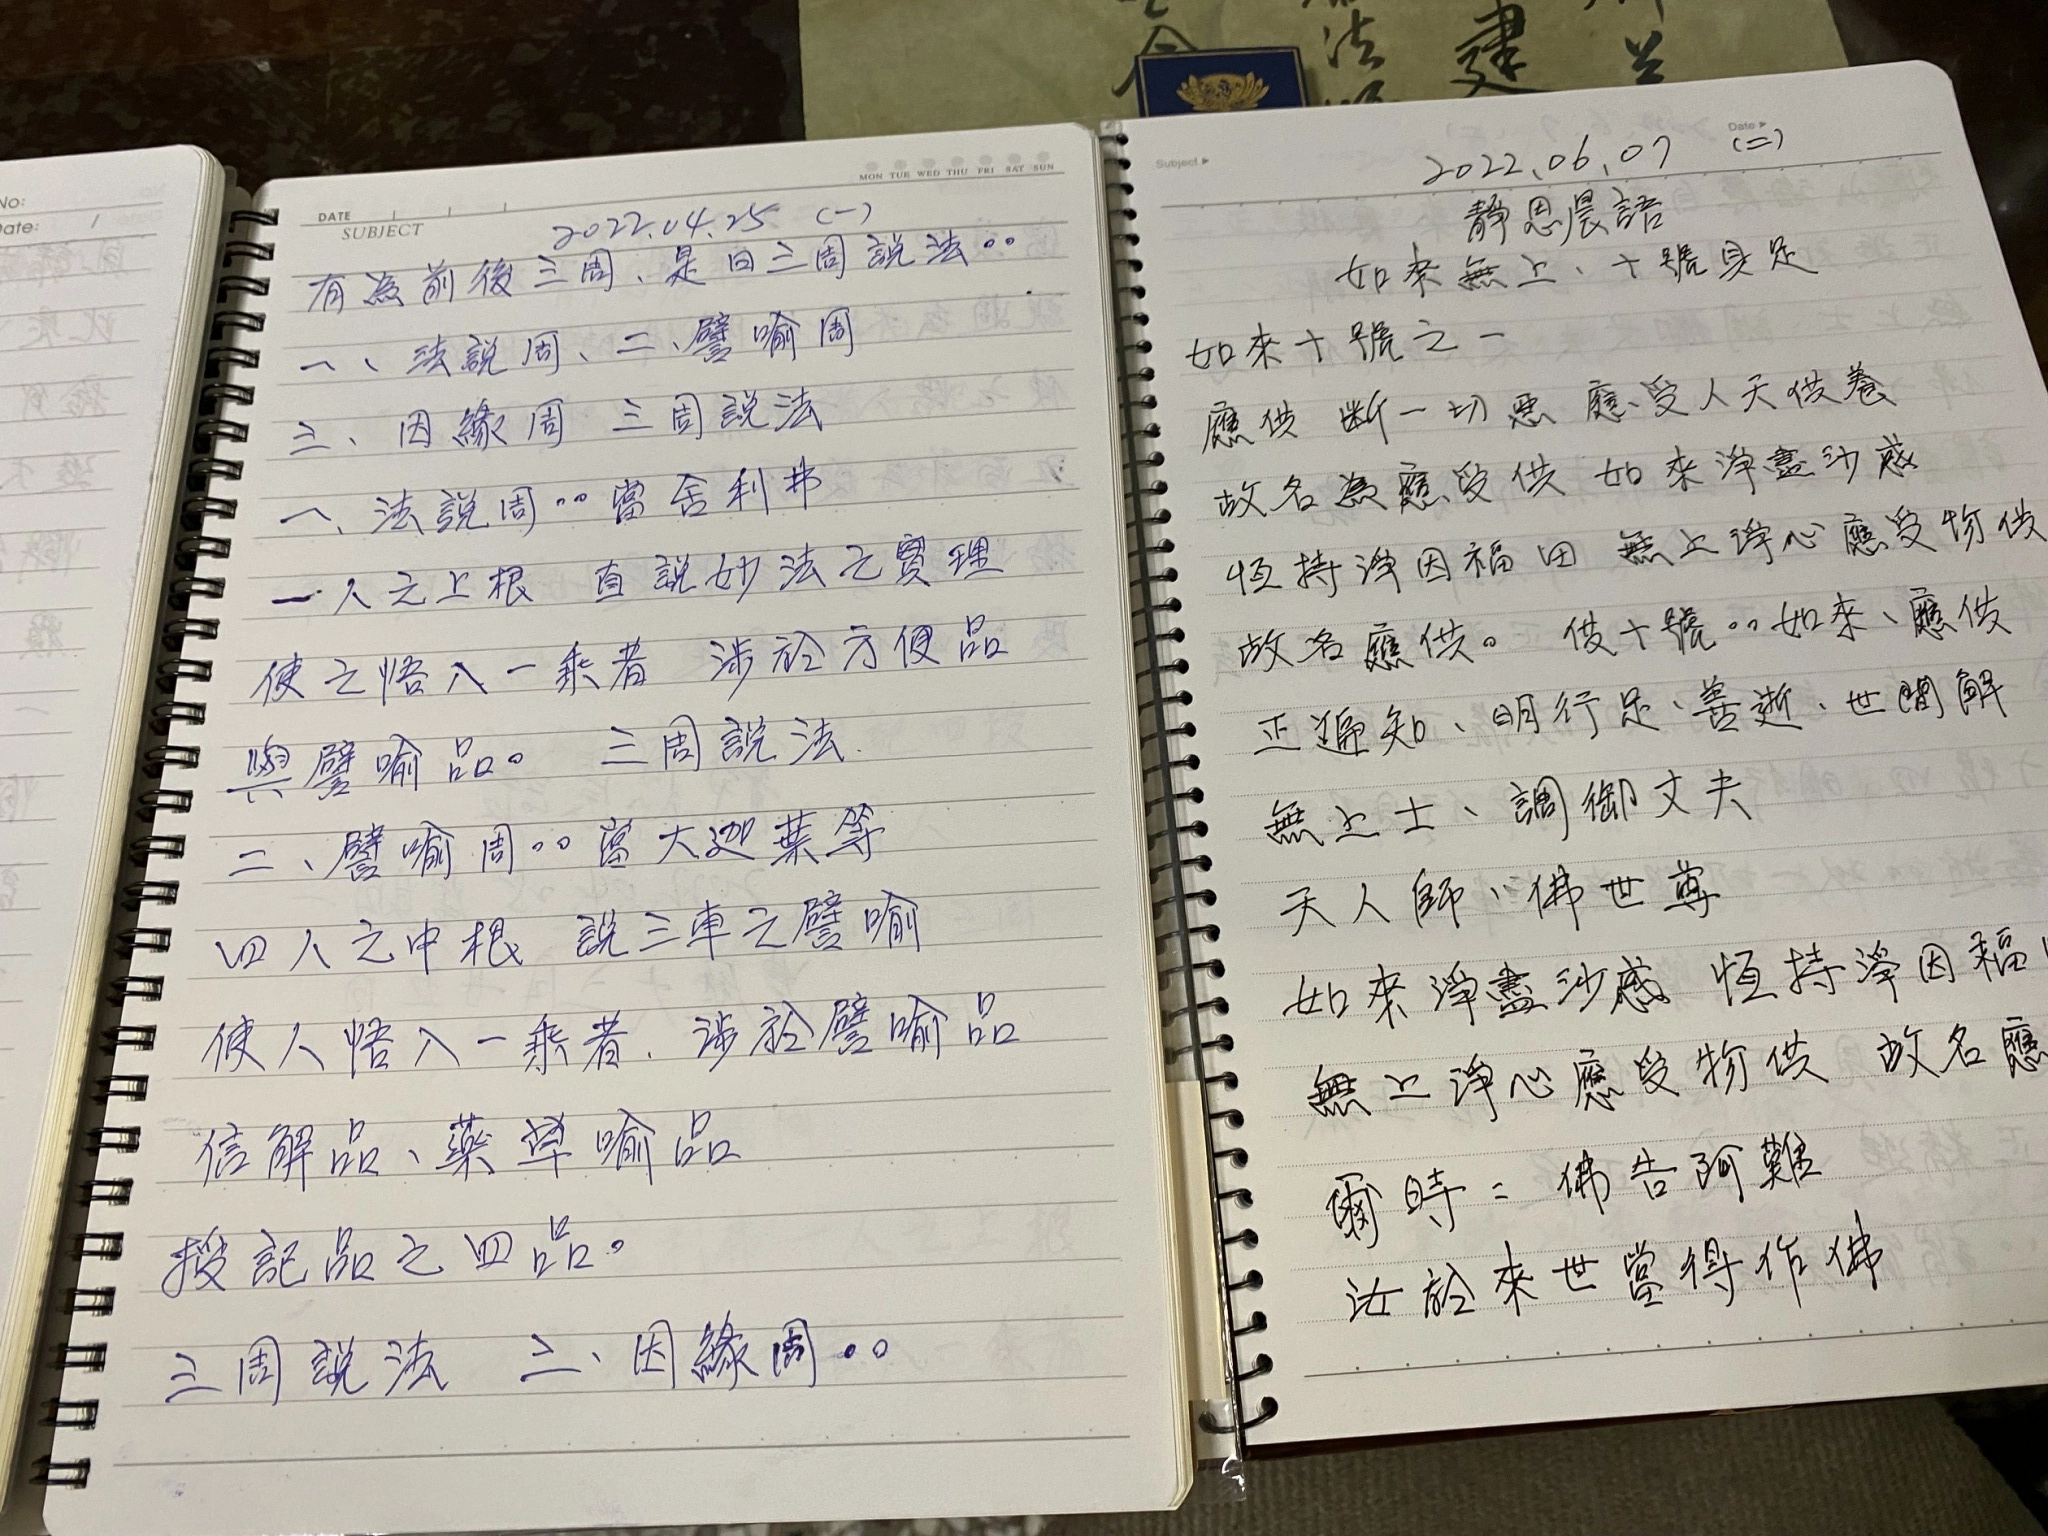 No:
Date: /
DATE
SUBJECT
MON TUE WED THU FRI SAT SUN
2022.04.25 (一)
有為前後三周、是曰三周說法：
一、法說周、二、譬喻周
三、因緣周 三周說法
一、法說周：當舍利弗
一人之上根 直說妙法之實理
使之悟入一乘者 涉於方便品
與譬喻品。 三周說法
二、譬喻周：當大迦葉等
四人之中根 說三車之譬喻
使人悟入一乘者、涉於譬喻品
信解品、藥草喻品
授記品之四品。
三周說法 三、因緣周：
法
建
Subject
Date
2022.06.07 (二)
靜思晨語
如來無上、十號具足
如來十號之一
應供 斷一切惡 應受人天供養
故名為應受供 如來淨盡沙惑
恆持淨因福田 無上淨心應受物供
故名應供。 供十號：如來、應供
正遍知、明行足、善逝、世間解
無上士、調御丈夫
天人師、佛世尊
如來淨盡沙惑 恆持淨因福
無上淨心應受物供 故名應
爾時：佛告阿難
汝於來世當得作佛